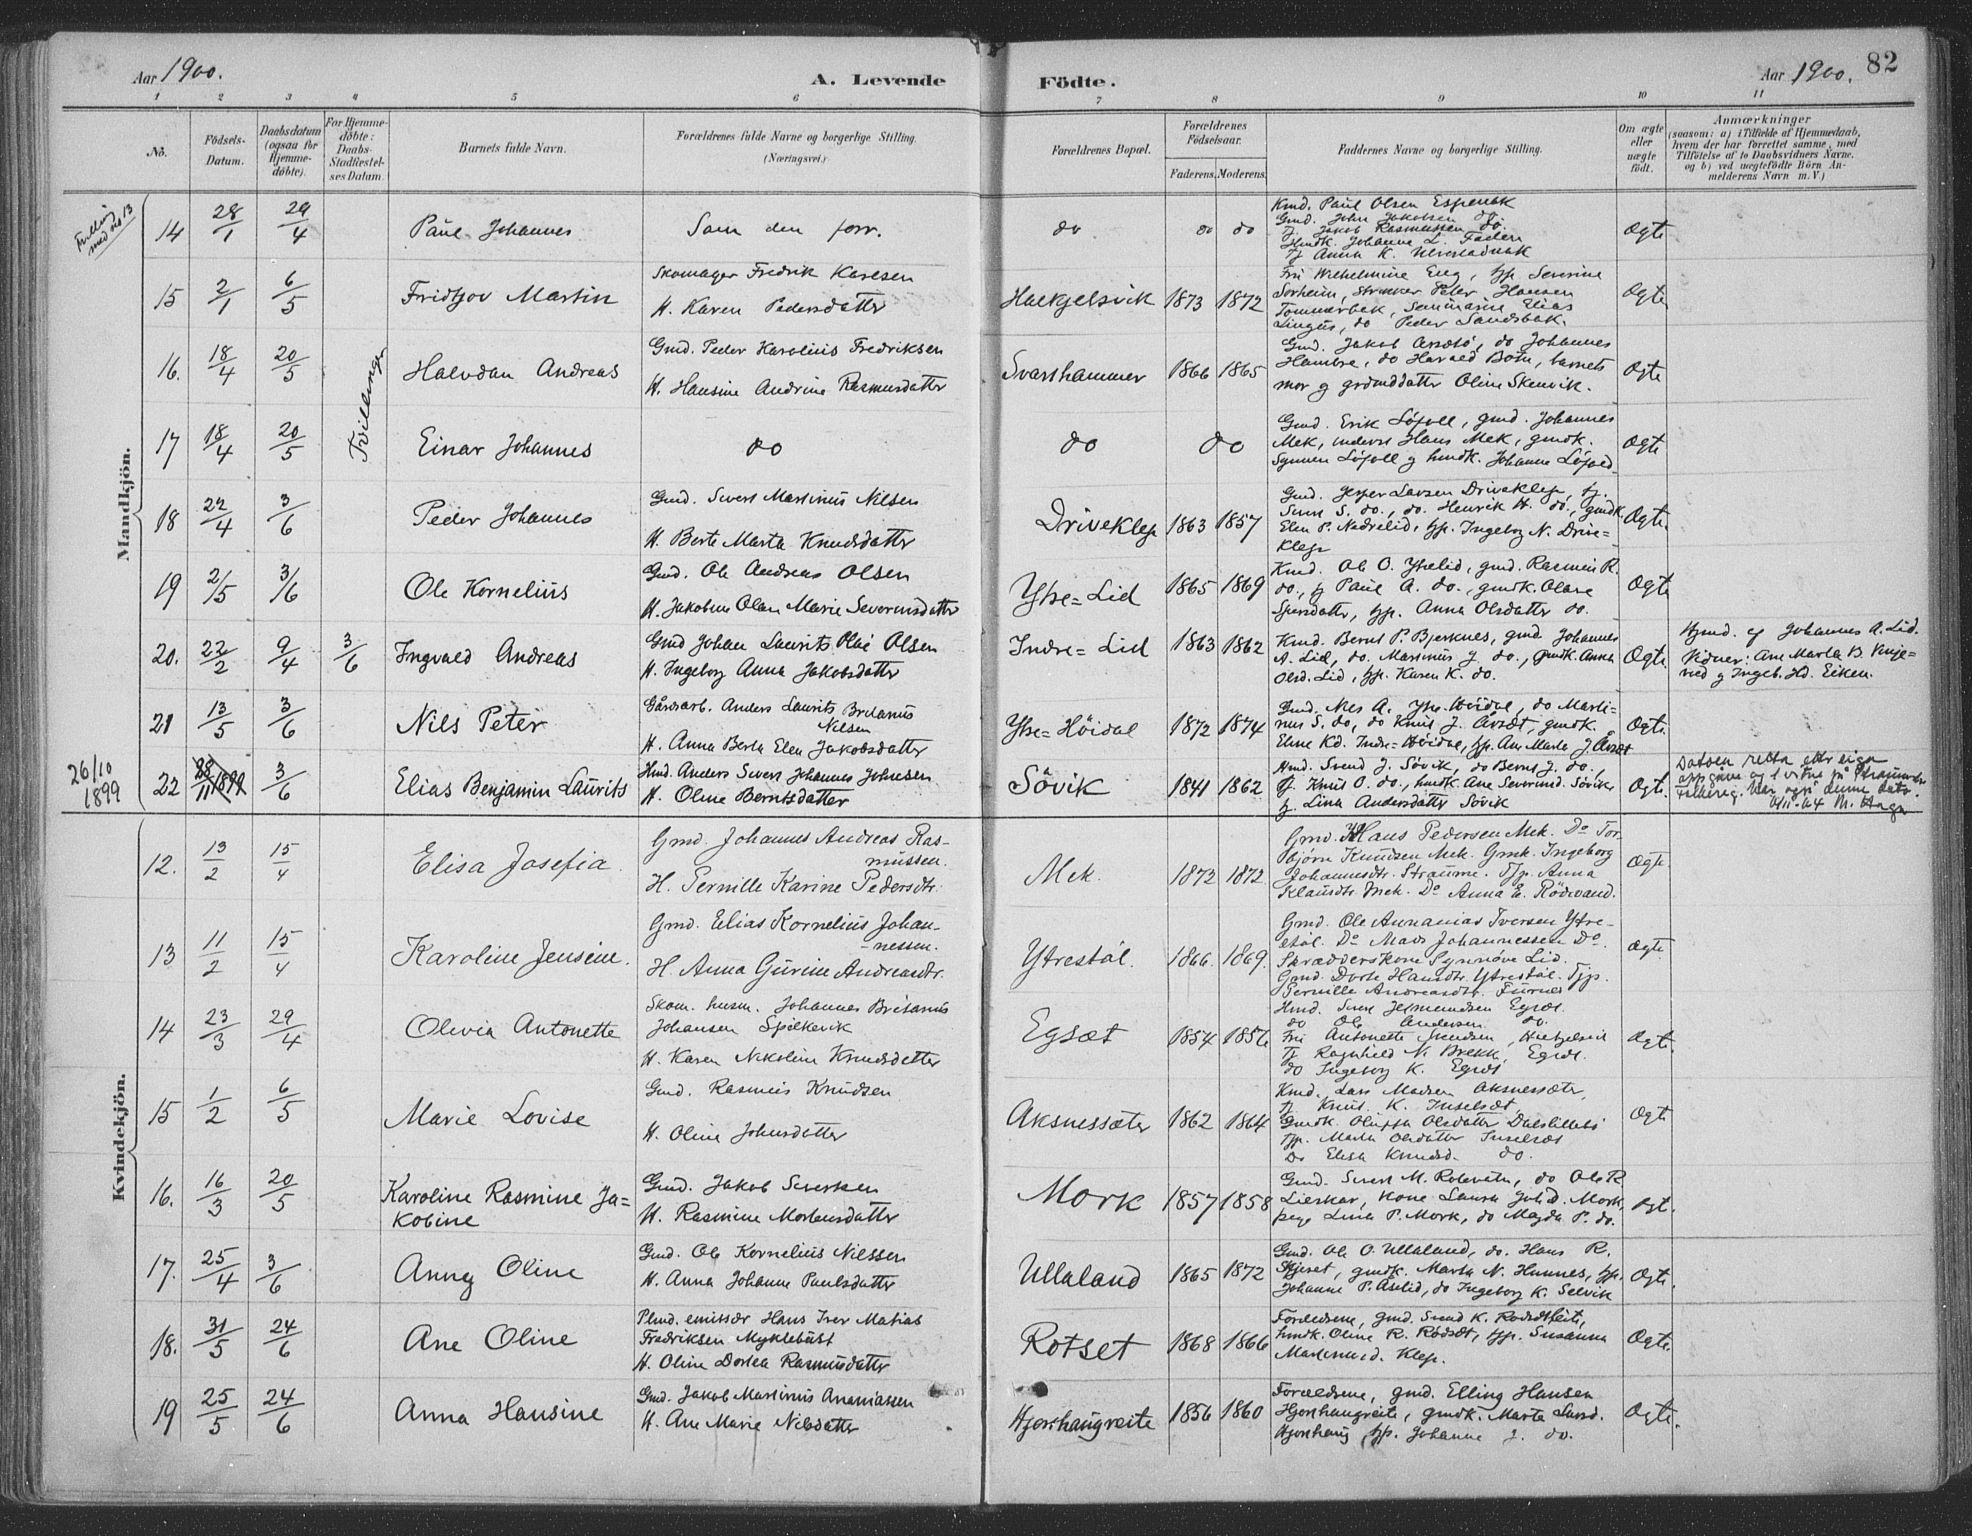 Aar 1900.
A. Levende
Födte.
Aar 1900.
82
1 2 3 4 5 6 7 8 9 10 11
No.
Födsels-Datum.
Daabsdatum (ogsaa for Hjemme-döbte).
For Hjemme-döbte: Daabs-Stadfæstel-ses Datum.
Barnets fulde Navn.
Forældrenes fulde Navne og borgerlige Stilling. (Næringsvei.)
Forældrenes Bopæl.
Forældrenes Födselsaar.
Faderens. Moderens.
Faddernes Navne og borgerlige Stilling.
Om ægte eller uægte födt.
Anmærkninger
(saasom: a) i Tilfælde af Hjemmedaab,
hvem der har forrettet samme, med
Tilföielse af to Daabsvidners Navne,
og b) ved uægtefödte Börn An-
melderens Navn m. V.)
Mandkjön.
Tvilling med No 13
14 28/1 29/4 Paul Johannes Som den forr. do do do
Kmd. Paul Olsen Espenak
Gmd. John Jakobsen do
Tj. Jakob Rasmussen do.
Hmdk. Johanne L. Faden
Tj Anna K. Ulvestadbak
Ægte
15 2/1 6/5 Fridtjov Martin
Skomager Fredrik Karlsen
H. Karen Pedersdatter
Halkjelsvik 1873 1872
Fru Wilhelmine Eng, tjp. Severine
Sorheim, Strækker Peter Hansen
Tommerbak, Seminarist Elias
Lingås, do Peder Sandsbak.
Ægte
Tvillinger
16. 18/4 20/5 Halvdan Andreas
Gmd. Peder Karolius Fredriksen
H. Hansine Andrine Rasmusdatter
Svarthammer 1866 1865
Gmd. Jakob Aasebö, do Johannes
Hambre, do Harald Botn, barnets
mor g grdmddatter Oline Skinvik.
Ægte
17 18/4 20/5 Einar Johannes do do do
Gmd. Erik Löfoll, gmd. Johannes
Mek, inderst Hans Mek, gmdk.
Synnen Löfoll g hmdk. Johanne Löfold.
Ægte
18 22/4 3/6 Peder Johannes
Gmd. Sivert Martinus Nilsen
H. Berte Marta Knudsdatter
Driveklep 1863 1857
Gmd. Jesper Larsen Driveklep, tj.
Sivert S. do., do. Henrik H. do, gmdk.
Elen P. Nedrelid, tjp. Ingeborg N. Drive-
klep
Ægte.
19 2/5 3/6 Ole Kornelius
Gmd. Ole Andreas Olsen
H. Jakobine Olan Marie Severinsdatter
Ytre=Lid 1865 1869
Kmd. Ole O. Ytrelid, gmd. Rasmus R.
do., tj Paul A. do., gmdk. Olave
Spersdatter, tjp. Anna Olsdatter do.
Ægte
20. 22/2 9/4 3/6 Ingvald Andreas
Gmd Johan Laurits Olai Olsen
H. Ingeborg Anna Jakobsdatter
Indre=Lid 1863 1862
Kmd. Bernt P. Bjerknes, gmd Johannes
A. Lid, do. Martinus J. do., gmdk. Anna
Olsd. Lid, tjp. Karen K. do.
Ægte.
Hjmd. af Johannes A. Lid.
Vidner: Ane Marta B. Vinje-
vied g Ingeb. Hd. Eiken.
21 13/5 3/6 Nils Peter
Gårdarb. Anders Laurits Britanus
Nilsen
H. Anna Berta Elen Jakobsdatter
Ytre=Höidal 1872 1874
Gmd. Nils A. Ytre-Höidal, do Marti-
nus S. do, do Knut J. Åvsæt, gmdk.
Eline Kd. Indre=Höidal, tjp. Ane Marta J. Åvsæt
Ægte.
26/10 1899
22 28/11 1899 3/6 Elias Benjamin Laurits
Hmd. Anders Sivert Johannes Johnsen
H. Oline Berntsdatter
Såvik 1841 1862
Hmd. Svend J. Såvik, do Bernt J. do.,
tj. Knut O. do., hmdk. Ane Severind. Såvik
tj. Lina Andersdatter Såvik
Ægte.
Datoen retta etter eiga
oppgåve og 1 vitne på Straumen
Folkereg. har også denne dato.
6/11-64 M. Haga
Kvindekjön.
12. 13/2 15/4 Elisa Josefia.
Gmd. Johannes Andreas Ras-
mussen.
H. Pernille Karine Pedersdtr.
Mek. 1872 1872.
Gmd. Hans Pedersen Mek. Do Tor-
bjørn Knudsen Mek. Gmk. Ingeborg
Johannesdtr. Straume. Tjp. Anna
Klausdtr. Mek. Do Anna E. Rödvand.
Ægte
13 11/2 15/4 Karoline Jensine.
Gmd. Elias Kornelius Johan-
nessen.
H. Anna Gurine Andreasdtr.
Ytrestöl. 1866. 1869.
Gmd. Ole Annanias Iversen Ytre-
stöl. Do Mads Johannessen Do.
Skrædderskone Synnöve Lid.
Gmd. Dorte Hansdtr. Ytrestöl. Tjp.
Pernille Andreasdtr. Furnes
Ægte
14 23/3 29/4 Olivia Antonette
Skom. husm. Johannes Britanus
Johansen Spilkevik
H. Karen Nikoline Knudsdatter
Egsæt 1854 1856
Hmd. Sivert Jetmundsen Egset.
do Ole Andersen do.
Fru Antonette Knudsen,
Tj Ragnhild N. Brekk, Egset.
do Ingeborg K. Egset
Ægte.
15 1/2 6/5 Marie Lovise
Gmd. Rasmus Knudsen
H. Oline Johnsdatter
Aksnessæter 1862 1864
Kmd. Lars Madsen Aksnessæter,
tj Knut K. Inselsæt
Gmdk Oluffa Olsdatter Dalslillebö
Tjp. Marta Olsdatter Inselsæt
Do Elisa Knudsd. do.
Ægte
16. 16/3 20/5 Karoline Rasmine Ja-
kobine
Gmd. Jakob Sivertsen
H. Rasmine Mortensdatter
Mork 1857 1858
Gmd. Sivert M. Rotevatn, do Ole R
Lieskar, Kone Laura Johsd. Mork,
pige Lina P. Mork, do Magda P. do.
Ægte.
17. 25/4 3/6 Anny Oline
Gmd. Ole Kornelius Nilssen
H. Anna Johanne Paulsdatter
Ullaland 1865 1872
Gmd. Ole O. Ullaland, do. Hans R.
Skjeret, gmdk. Marta N. Hunnes, tjp.
Johanne P. Åslid, do Ingeborg K. Selvik
Ægte.
18. 31/5 24/6 Ane Oline
Plmd. emissær Hans Iver Matias
Fredriksen Myklebust
H. Oline Dortea Rasmusdatter
Rotset 1868 1866
Forældrene, gmd. Svend K. Rodsethleite,
hmdk. Oline R. Rödsæt, tjp. Susanna
Martinusd. Klep.
Ægte.
19 25/5 24/6 Anna Hansine
Gmd. Jakob Martinus Ananiassen
H. Ane Marie Nilsdatter
Hjorthaugreite 1856 1860
Forældrene, gmd. Elling Hansen
Hjorthaugreite, gmdk. Marta Larsd.
Hjorthaug, tjp. Johanne J. do.
Ægte.